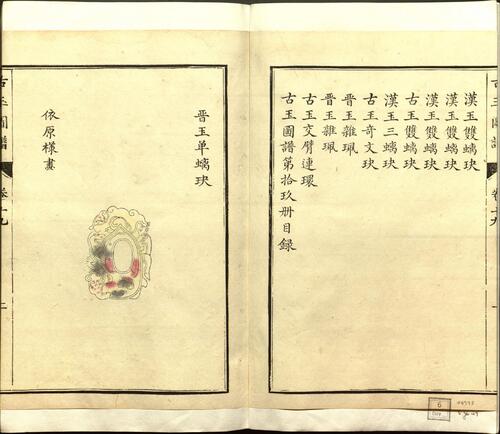 漢玉雙螭玦
漢玉雙螭玦
漢玉雙螭玦
古玉雙螭玦
漢玉三螭玦
古玉奇文玦
晋玉雜珮
晋玉雜珮
古玉交臂連環
古玉圖譜第拾玖册目録
晋玉单螭玦
依原樣畫
古玉圖譜
卷十九
二